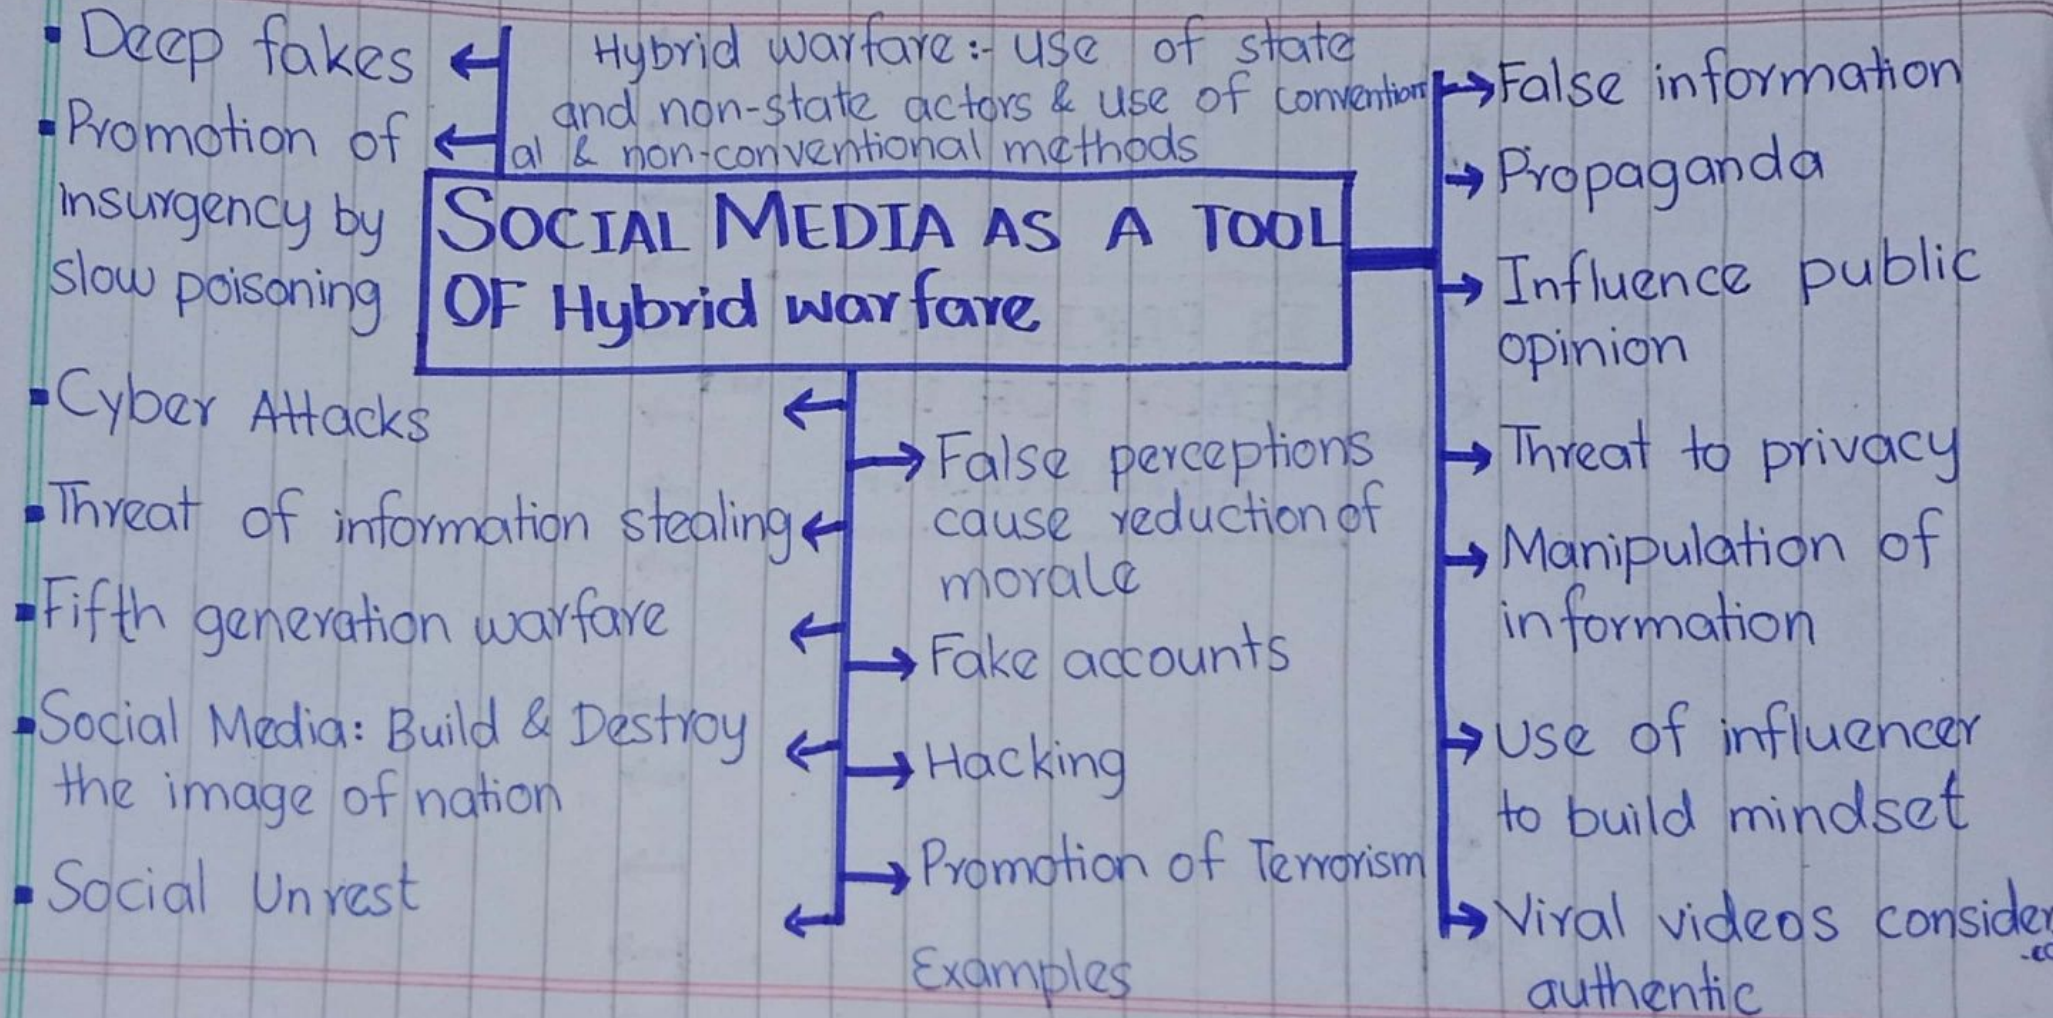 Hybrid warfare:- use of state
and non-state actors & use of convention
al & non-conventional methods
SOCIAL MEDIA AS A TOOL
OF Hybrid warfare
▪ Deep fakes
▪ Promotion of
insurgency by
slow poisoning
▪ Cyber Attacks
▪ Threat of information stealing
▪ Fifth generation warfare
▪ Social Media: Build & Destroy
the image of nation
▪ Social Unrest
False perceptions
cause reduction of
morale
Fake accounts
Hacking
Promotion of Terrorism
Examples
False information
Propaganda
Influence public
opinion
Threat to privacy
Manipulation of
information
Use of influencer
to build mindset
Viral videos consider
authentic